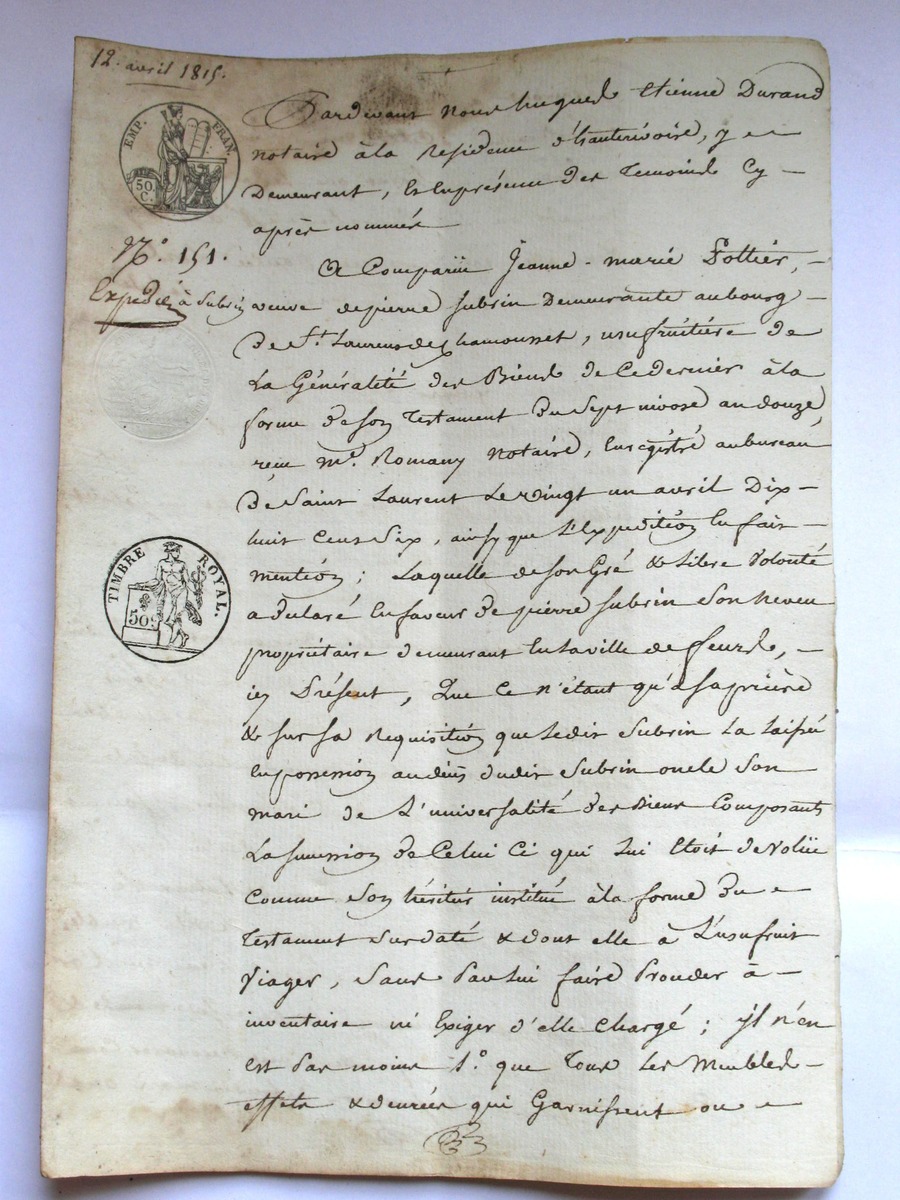 12. avril 1815.
EMP. FRAN.
50 C.
Pardevant Nous hugues Etienne Durand
notaire à la Residence d'hauterivoire, y
Demeurant, Et En présence des Temoins Cy
après nommés
N.º 151.
Expedié à Subrin
A Comparüe Jeanne-marie Pottier,
veuve de pierre Subrin Demeurante au bourg
De St. Laurens de Chamousset, usufruitière de
La Généralité des Biens de Ce dernier à la
forme De son Testament Du Sept nivose an douze,
reçu Me. Romany Notaire, Enrégistré au bureau
De Saint Laurent Le vingt un avril Dix
huit Cent Six, ainsy que L'Expedition En fait
mention; Laquelle de son Gré & Libre Volonté
a déclaré En faveur De pierre Subrin Son Neveu
propriétaire demeurant En la ville de feurs,
icy Présent, Que Ce n'étant qu'à sa prière
& sur sa Requisition que Ledit Subrin La Laissé
En possession au décès dudit Subrin oncle Son
mari de L'universalité des Biens Composants
La succession de Celui Ci qui Lui Etoit dévolüe
Comme Son héritier institué à la forme Du
Testament Susdaté & dont elle à L'usufruit
Viager, Sans Par Lui faire Proceder à
inventaire ni Exiger d'elle Chargé; yl n'en
est Pas moins 1º que Tous Les Meubles
effets & denrées qui Garnissent ou
TIMBRE ROYAL.
50 C